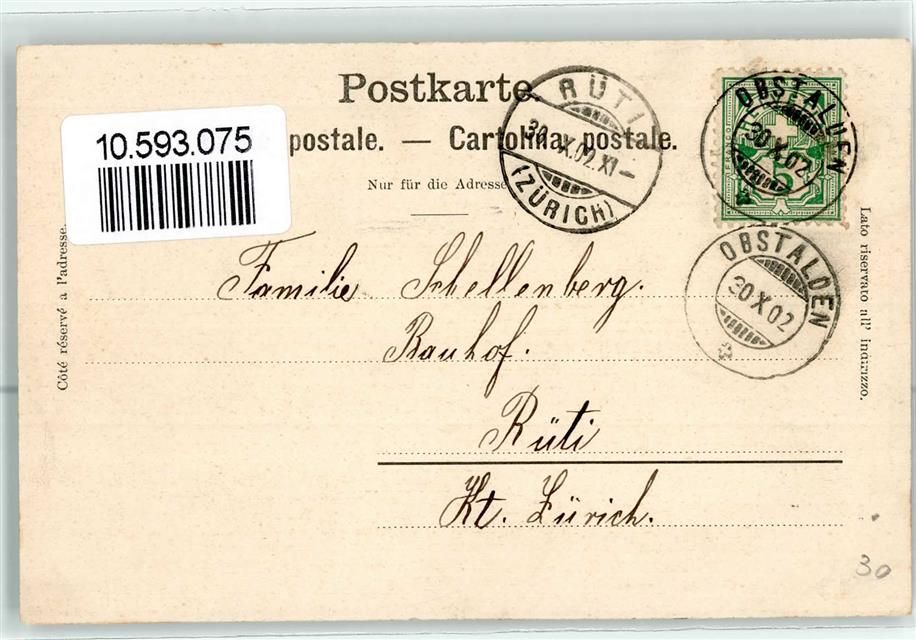 Postkarte.
10.593.075
postale. — Cartolina postale.
Nur für die Adresse
RÜTI
30.X.02.XI–
(ZÜRICH)
OBSTALDEN
30.X.02
5
OBSTALDEN
30 X 02
Côté réservé à l'adresse.
Lato riservato all' indirizzo.
Familie Schellenberg.
Bauhof.
Rüti
Kt. Zürich.
30